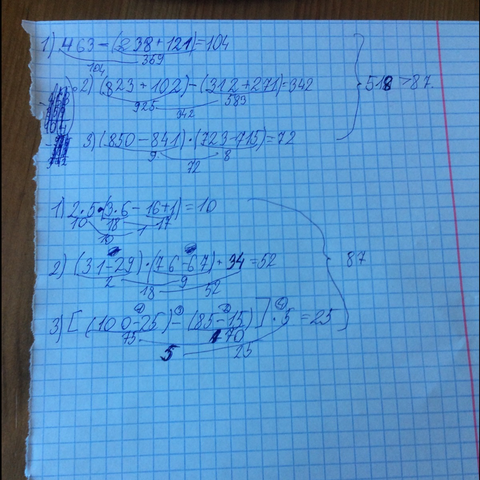 1) 463-(238+121)=104
104 359
2) (823+102)-(312+271)=342
925 583
342
518 >87.
3) (850-841)·(723-715)=72
9 8
72
1) 2·5·(3·6-16+1)=10
10 18 17
10 1
2) (31-29)·(76-67)+34=52
2 9
18 52
87
3) [(100-25)-(85-15)]·5=25
75 70
5 25